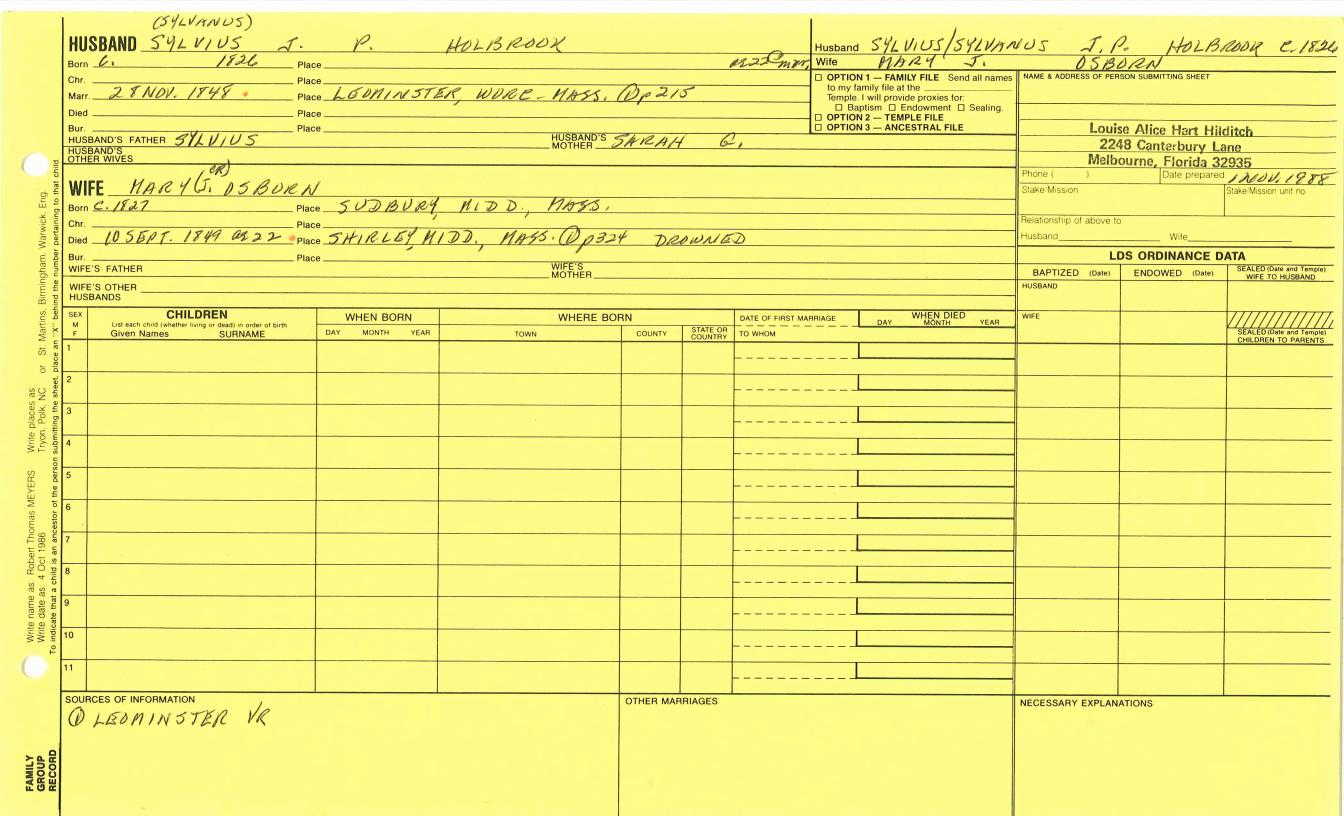 (SYLVANUS)
HUSBAND SYLVIUS J. P. HOLBROOK
Born C. 1826 Place æ22@mar.
Chr. Place
Marr. 28 NOV. 1848 Place LEOMINSTER, WORC-MASS. ① p215
Died Place
Bur. Place
HUSBAND'S FATHER SYLVIUS HUSBAND'S MOTHER SARAH G.
HUSBAND'S OTHER WIVES
(OR)
WIFE MARY (J. OSBURN
Born C. 1827 Place SUDBURY, MIDD., MASS.
Chr. Place
Died 10 SEPT. 1849 æ 22 Place SHIRLEY, MIDD., MASS. ① p324 DROWNED
Bur. Place
WIFE'S FATHER WIFE'S MOTHER
WIFE'S OTHER HUSBANDS
Husband SYLVIUS/SYLVANUS J. P. HOLBROOK C.1826
Wife MARY J. OSBORN
☐ OPTION 1 — FAMILY FILE Send all names
to my family file at the
Temple. I will provide proxies for:
☐ Baptism ☐ Endowment ☐ Sealing.
☐ OPTION 2 — TEMPLE FILE
☐ OPTION 3 — ANCESTRAL FILE
NAME & ADDRESS OF PERSON SUBMITTING SHEET
Louise Alice Hart Hilditch
2248 Canterbury Lane
Melbourne, Florida 32935
Phone ( ) Date prepared 1 NOV. 1988
Stake/Mission Stake/Mission unit no
Relationship of above to
Husband Wife
LDS ORDINANCE DATA
BAPTIZED (Date) ENDOWED (Date) SEALED (Date and Temple) WIFE TO HUSBAND
HUSBAND
WIFE
SEALED (Date and Temple) CHILDREN TO PARENTS
SEX M F
CHILDREN
List each child (whether living or dead) in order of birth
Given Names SURNAME
WHEN BORN
DAY MONTH YEAR
WHERE BORN
TOWN COUNTY STATE OR COUNTRY
DATE OF FIRST MARRIAGE
TO WHOM
WHEN DIED
DAY MONTH YEAR
1
2
3
4
5
6
7
8
9
10
11
SOURCES OF INFORMATION
① LEOMINSTER VR
OTHER MARRIAGES
NECESSARY EXPLANATIONS
Write name as: Robert Thomas MEYERS Write places as: Tryon, Polk, NC or St. Martins, Birmingham, Warwick, Eng.
Write date as: 4 Oct 1986
To indicate that a child is an ancestor of the person submitting the sheet, place an "X" behind the number pertaining to that child
FAMILY
GROUP
RECORD